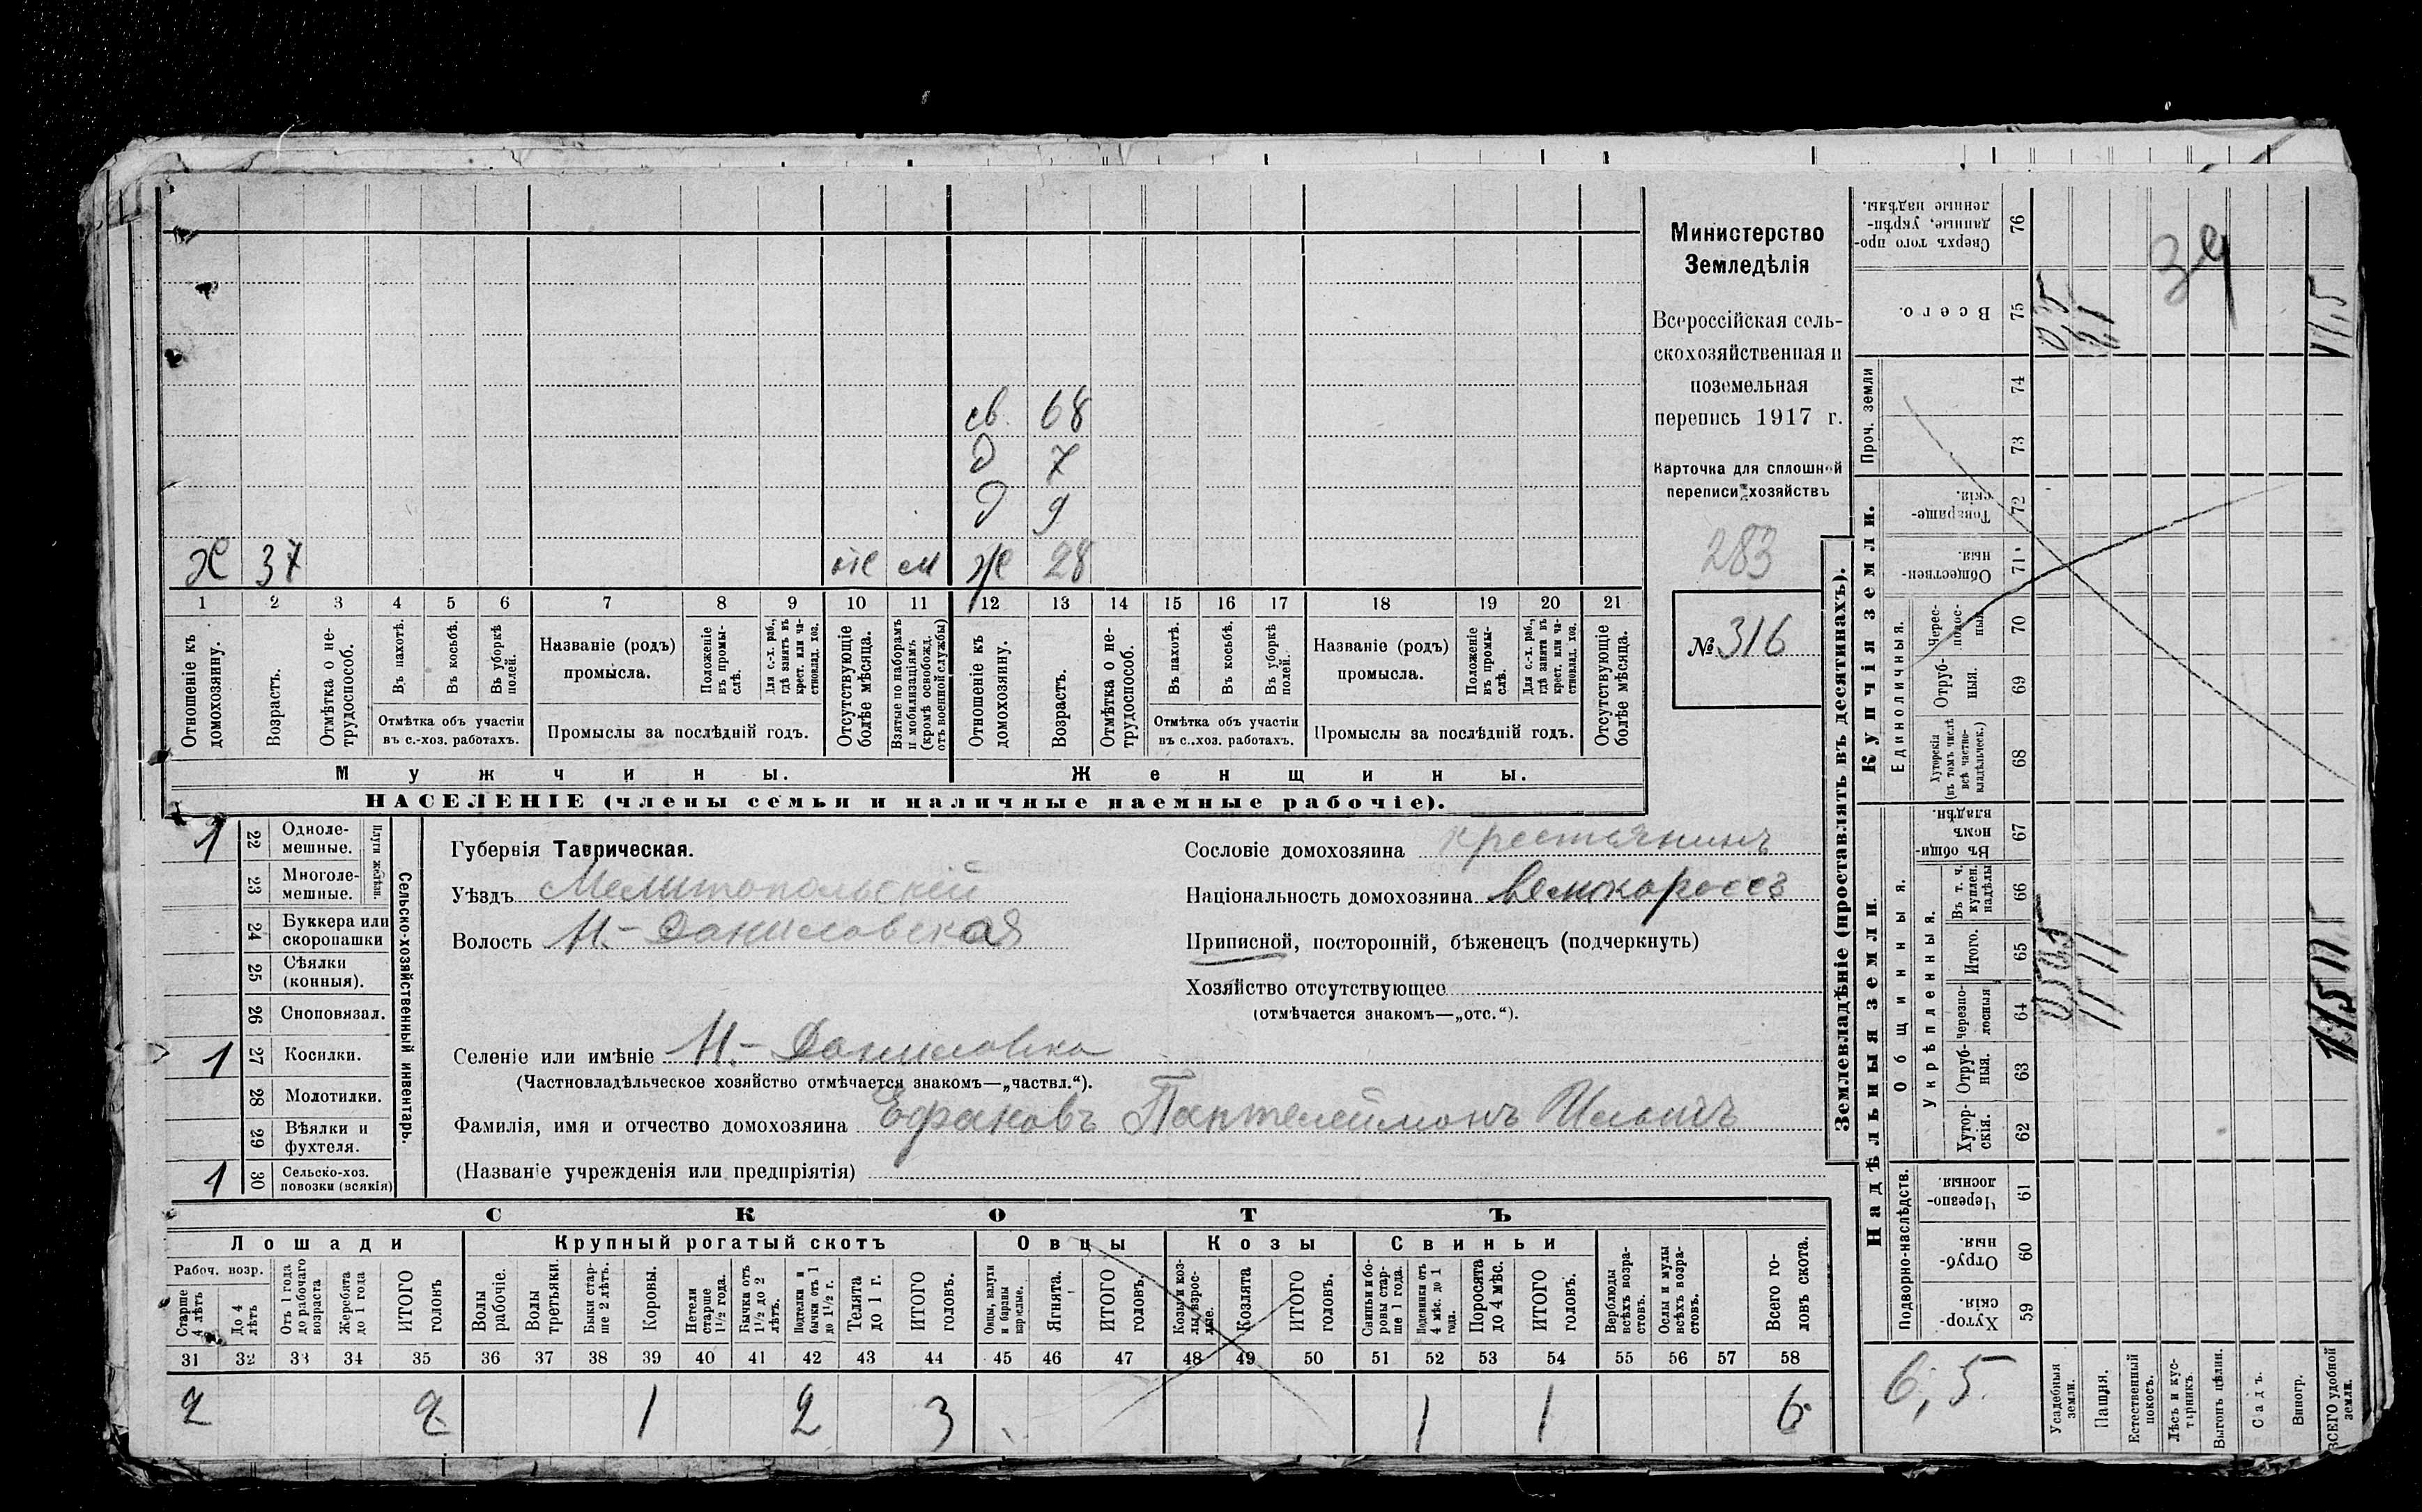 Министерство
Земледѣлія
Всероссійская сель-
скохозяйственная и
поземельная
перепись 1917 г.
Карточка для сплошной
переписи хозяйствъ
283
№ 316
св. 68
д 7
д 9
Х 37 м ж 28
1 2 3 4 5 6 7 8 9 10 11 12 13 14 15 16 17 18 19 20 21
Отношеніе къ домохозяину.
Возрастъ.
Отмѣтка о не-трудоспособ.
Въ пахотѣ.
Въ косьбѣ.
Въ уборкѣ полей.
Отмѣтка объ участіи
въ с.-хоз. работахъ.
Названіе (родъ)
промысла.
Положеніе въ промы-слѣ.
Для с.-х. раб., гдѣ занятъ въ крест. или ча-стновлад. хоз.
Промыслы за послѣдній годъ.
Отсутствующіе болѣе мѣсяца.
Взятые по наборамъ и мобилизаціямъ (кромѣ освобожд. отъ военной службы)
Отношеніе къ домохозяину.
Возрастъ.
Отмѣтка о не-трудоспособ.
Въ пахотѣ.
Въ косьбѣ.
Въ уборкѣ полей.
Отмѣтка объ участіи
въ с.-хоз. работахъ.
Названіе (родъ)
промысла.
Положеніе въ промы-слѣ.
Для с.-х. раб., гдѣ занята въ крест. или ча-стновлад. хоз.
Промыслы за послѣдній годъ.
Отсутствующіе болѣе мѣсяца.
Мужчины. Женщины.
НАСЕЛЕНІЕ (члены семьи и наличные наемные рабочіе).
1 22 Одноле-мешные.
23 Многоле-мешные.
Плуги желѣзн.
24 Буккера или скоропашки
25 Сѣялки (конныя).
26 Сноповязал.
1 27 Косилки.
28 Молотилки.
29 Вѣялки и фухтеля.
1 30 Сельско-хоз. повозки (всякія)
Сельско-хозяйственный инвентарь.
Губернія Таврическая.
Уѣздъ Мелитопольскій
Волость Н.-Даниловская
Сословіе домохозяина крестьянинъ
Національность домохозяина великороссъ
Приписной, посторонній, бѣженецъ (подчеркнуть)
Хозяйство отсутствующее
(отмѣчается знакомъ—„отс.“).
Селеніе или имѣніе Н.-Даниловка
(Частновладѣльческое хозяйство отмѣчается знакомъ—„частвл.“).
Фамилія, имя и отчество домохозяина Ефановъ Пантелеймонъ Ильичъ
(Названіе учрежденія или предпріятія)
СКОТЪ
Лошади Крупный рогатый скотъ Овцы Козы Свиньи
Рабоч. возр.
Старше 4 лѣтъ
До 4 лѣтъ
Отъ 1 года до рабочаго возраста
Жеребята до 1 года
ИТОГО головъ
Волы рабочіе.
Волы третьяки.
Быки стар-ше 2 лѣтъ.
Коровы.
Нетели старше 1½ года.
Бычки отъ 1½ до 2 лѣтъ.
Подтелки и бычки отъ 1 до 1½ г.
Телята до 1 г.
ИТОГО головъ.
Овцы, валухи и бараны взрослые.
Ягнята.
ИТОГО головъ.
Козы и коз-лы взрос-лые.
Козлята
ИТОГО головъ.
Свиньи и бо-ровы стар-ше 1 года.
Подсвинки отъ 4 мѣс. до 1 года.
Поросята до 4 мѣс.
ИТОГО головъ.
Верблюды всѣхъ возра-стовъ.
Ослы и мулы всѣхъ возра-стовъ.
Всего го-ловъ скота.
31 32 33 34 35 36 37 38 39 40 41 42 43 44 45 46 47 48 49 50 51 52 53 54 55 56 57 58
2 2 1 2 3 1 1 6
Землевладѣніе (проставлять въ десятинахъ).
Сверхъ того про-данные, укрѣп-ленные надѣлы. 76
Всего. 75
Проч. земли 74 73
Купчія земли.
Товарище-скія. 72
Обществен-ныя. 71
Единоличныя.
Черес-полос-ныя. 70
Отруб-ныя. 69
Хуторскія (въ томъ числѣ всѣ частно-владѣльческ.) 68
Надѣльныя земли
Въ общи-номъ владѣн. 67
Общинныя.
Укрѣпленныя.
Въ т. ч. куплен. надѣлы 66
Итого. 65
Черезпо-лосныя 64
Отруб-ныя. 63
Хутор-скія. 62
Подворно-наслѣдств.
Черезпо-лосныя 61
Отруб-ныя. 60
Хутор-скія 59
6,5
Усадебныя земли.
Пашня.
Естественный покосъ.
Лѣсъ и кус-тарникъ.
Выгонъ цѣлин.
Садъ.
Виногр.
ВСЕГО удобной земли.